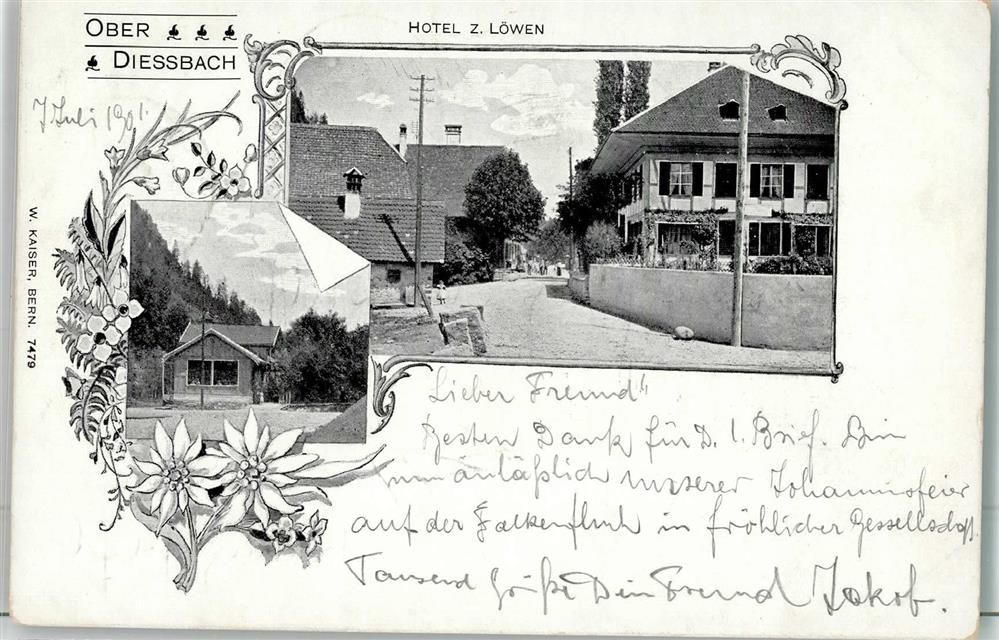 OBER
DIESSBACH
HOTEL Z. LÖWEN
7 Juli 1901.
W. KAISER, BERN. 7479
Lieber Freund!!
Besten Dank für D. l. Brief. Bin
nun anläßlich unserer Johannisfeier
auf der Falkenfluh in fröhlicher Gesellschaft.
Tausend Grüße Dein Freund Jakob.